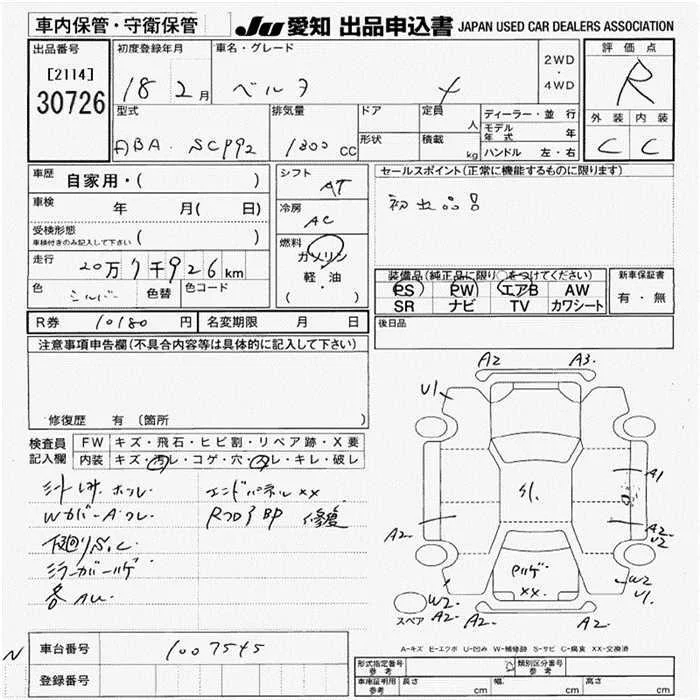 車内保管・守衛保管 JU 愛知 出品申込書 JAPAN USED CAR DEALERS ASSOCIATION
出品番号 初度登録年月 車名・グレード 2WD ・ 4WD 評価点
[2114] 30726 18 2月 ベルタ X R
型式 排気量 ドア 定員 人 ディーラー・並行 外装 内装
形状 積載 kg モデル年式 年
ABA-SCP92 1300 CC ハンドル 左・右 C C
車歴 自家用・( ) シフト AT セールスポイント(正常に機能するものに限ります)
車検 年 月( 日) 冷房 AC 初出品
受検形態 車検付きのみ記入して下さい ( )
走行 20万7千926km 燃料 ガソリン 軽・油 ( )
装備品(純正品に限り○をつけてください) 新車保証書
色 シルバー 色替 色コード
PS PW エアB AW 有・無
SR ナビ TV カワシート
R券 10180 円 名変期限 月 日 後日品
注意事項申告欄(不具合内容等は具体的に記入して下さい)
修復歴 有 (箇所 )
A2 A3.
U1
検査員記入欄 FW キズ・飛石・ヒビ割・リペア跡・X要
内装 キズ・汚レ・コゲ・穴・スレ・キレ・破レ
エンドパネルxx
RフロアBP 修復
A1
A2- A2- U2
下廻りS.C
xx.
W2- A2- A2- W2 U1.
スペア
A-キズ E-エクボ U-凹み W-補修跡 S-サビ C-腐食 XX-交換済
N 車台番号 1007545
登録番号
形式指定番号 参考 類別区分番号 参考
車庫証明用 参考 長さ cm 幅 cm 高さ cm